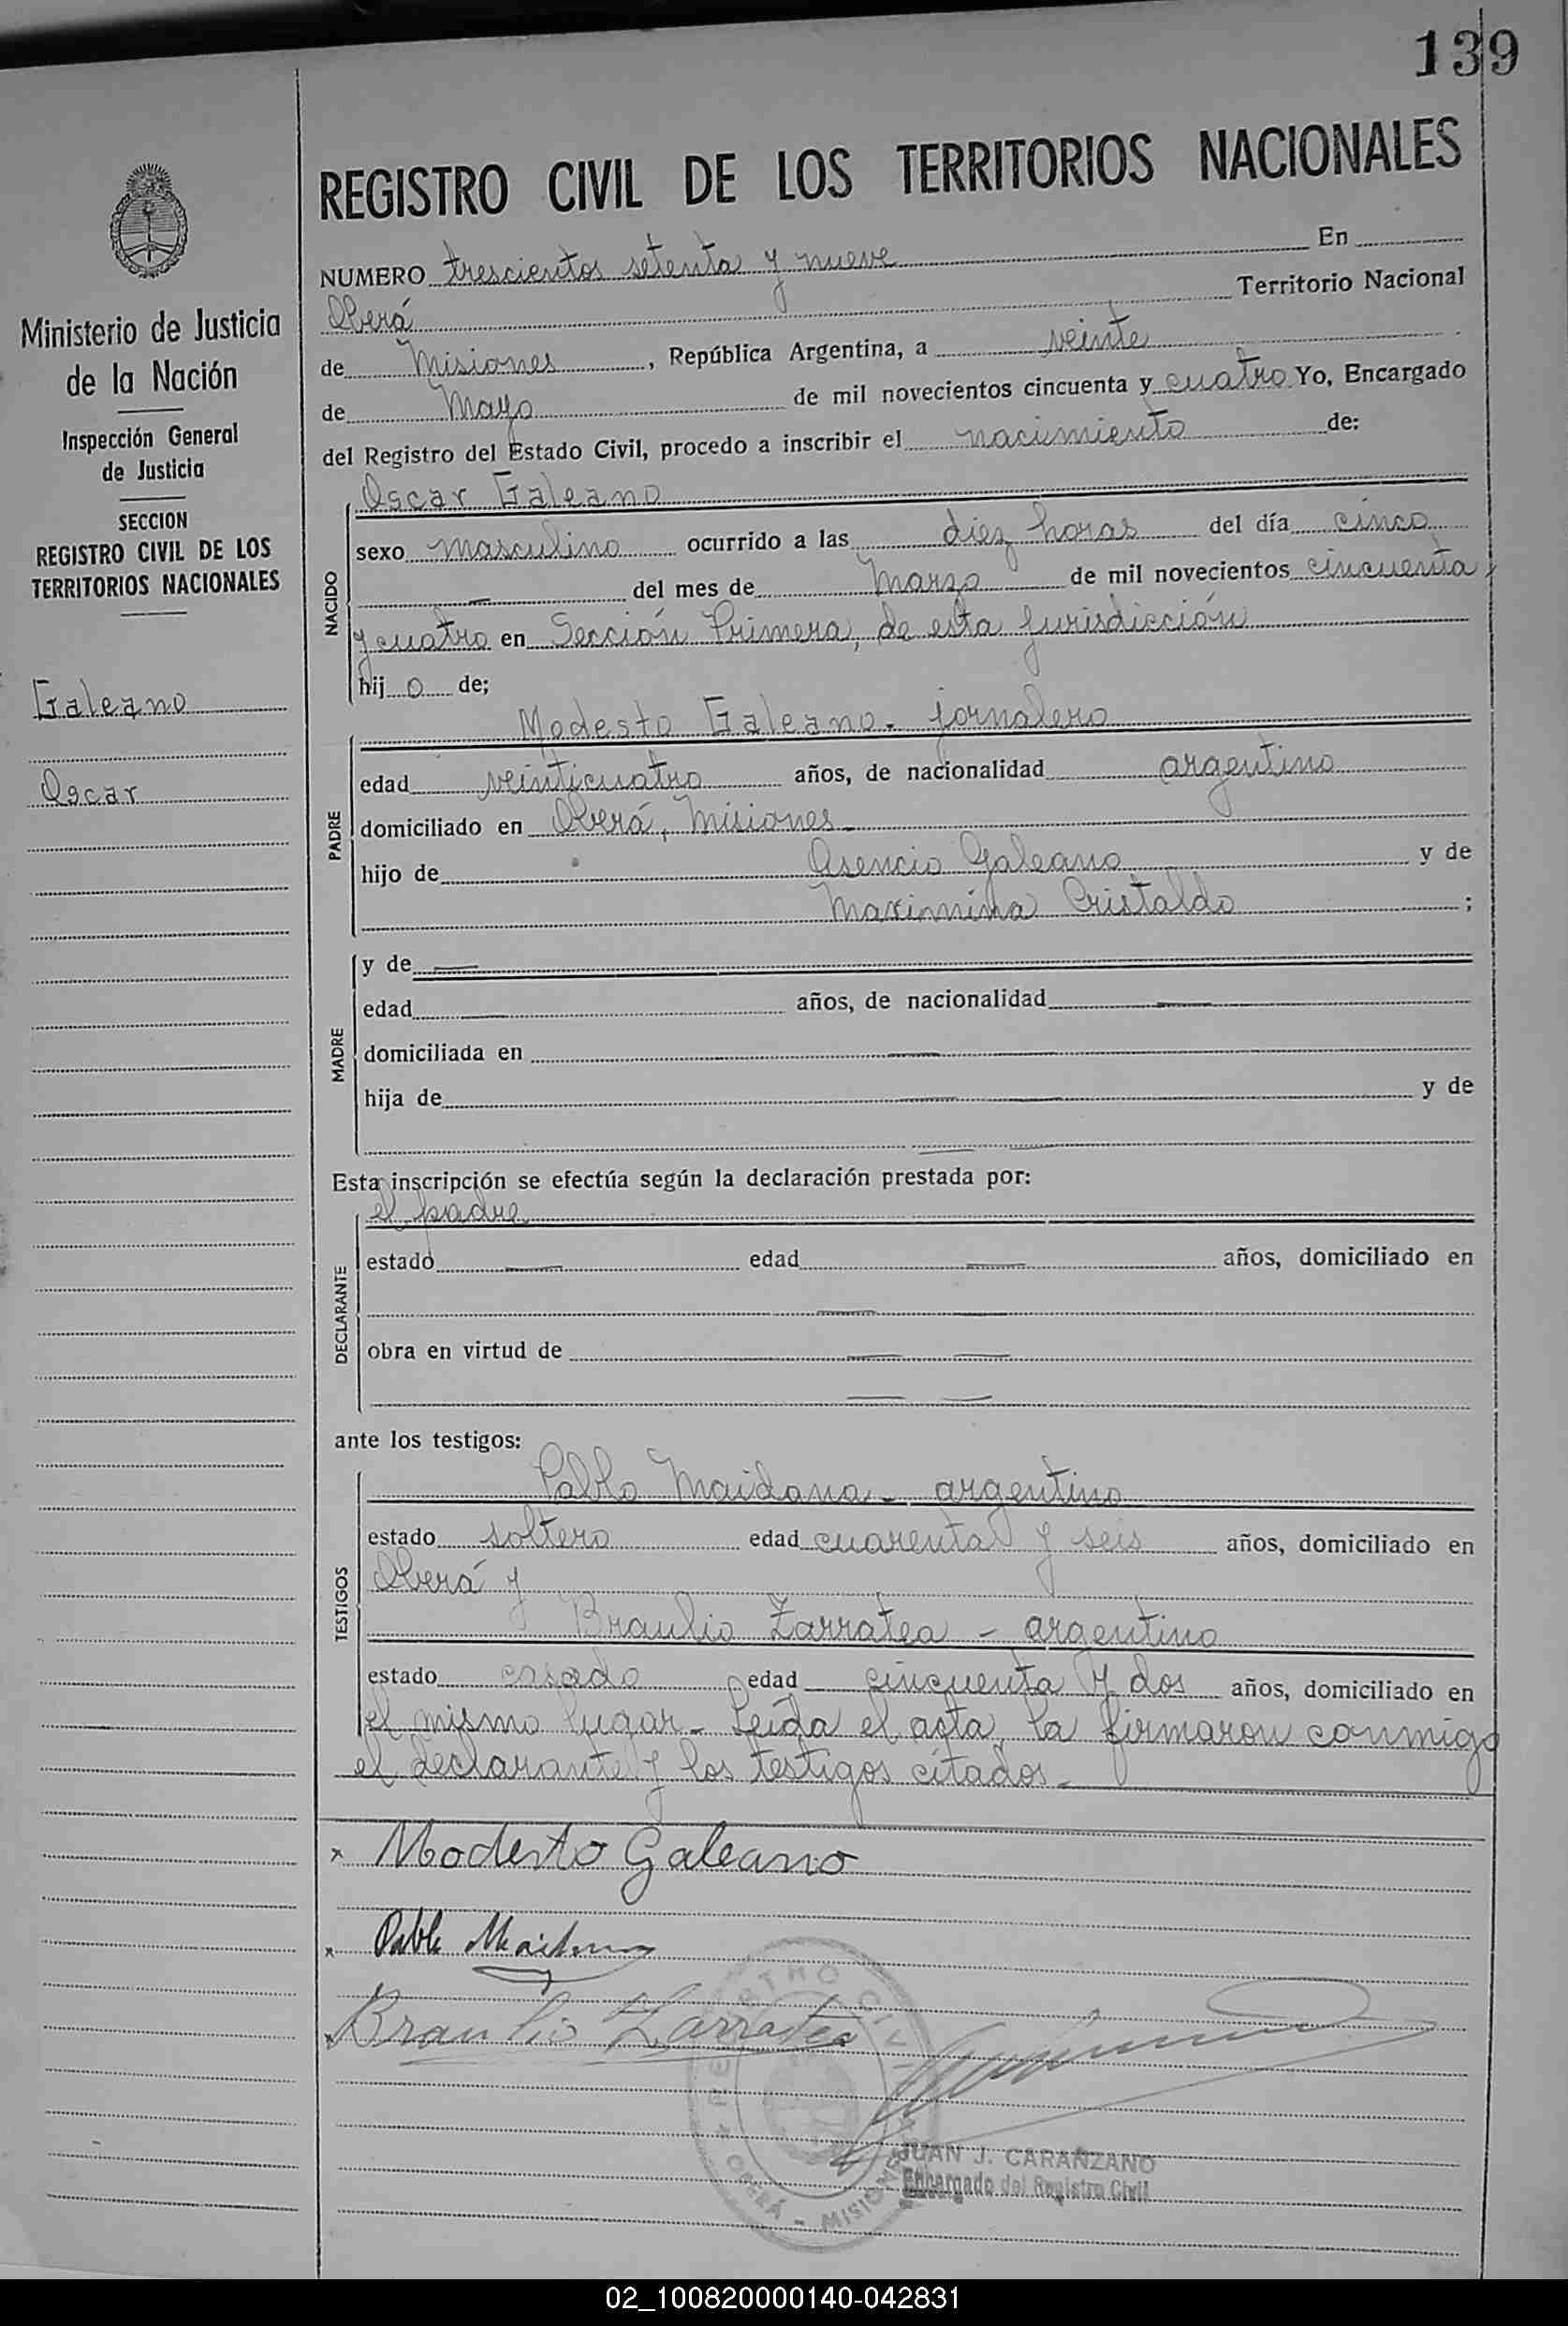 139
REGISTRO CIVIL DE LOS TERRITORIOS NACIONALES
NUMERO trescientos setenta y nueve En
Oberá Territorio Nacional
de Misiones, República Argentina, a veinte
de Mayo de mil novecientos cincuenta y cuatro Yo, Encargado
del Registro del Estado Civil, procedo a inscribir el nacimiento de:
Ministerio de Justicia
de la Nación
Inspección General
de Justicia
SECCION
REGISTRO CIVIL DE LOS
TERRITORIOS NACIONALES
Galeano
Oscar
NACIDO
Oscar Galeano
sexo masculino ocurrido a las diez horas del día cinco
— del mes de Marzo de mil novecientos cincuenta
y cuatro en Sección Primera, de esta jurisdicción
hijo de;
PADRE
Modesto Galeano - jornalero
edad veinticuatro años, de nacionalidad argentino
domiciliado en Oberá, Misiones -
hijo de Asencio Galeano y de
Maximina Cristaldo ;
MADRE
y de —
edad — años, de nacionalidad —
domiciliada en —
hija de — — y de
— —
Esta inscripción se efectúa según la declaración prestada por:
DECLARANTE
el padre
estado — edad — años, domiciliado en
— —
obra en virtud de — —
— —
ante los testigos:
TESTIGOS
Pablo Maidana - argentino
estado soltero edad cuarenta y seis años, domiciliado en
Oberá y
Braulio Zarratea - argentino
estado casado edad cincuenta y dos años, domiciliado en
el mismo lugar - Leída el acta, la firmaron conmigo
el declarante y los testigos citados -
x Modesto Galeano
x Pablo Maidana
x Braulio Zarratea
REGISTRO CIVIL
OBERÁ - MISIONES
JUAN J. CARANZANO
Encargado del Registro Civil
02_100820000140-042831